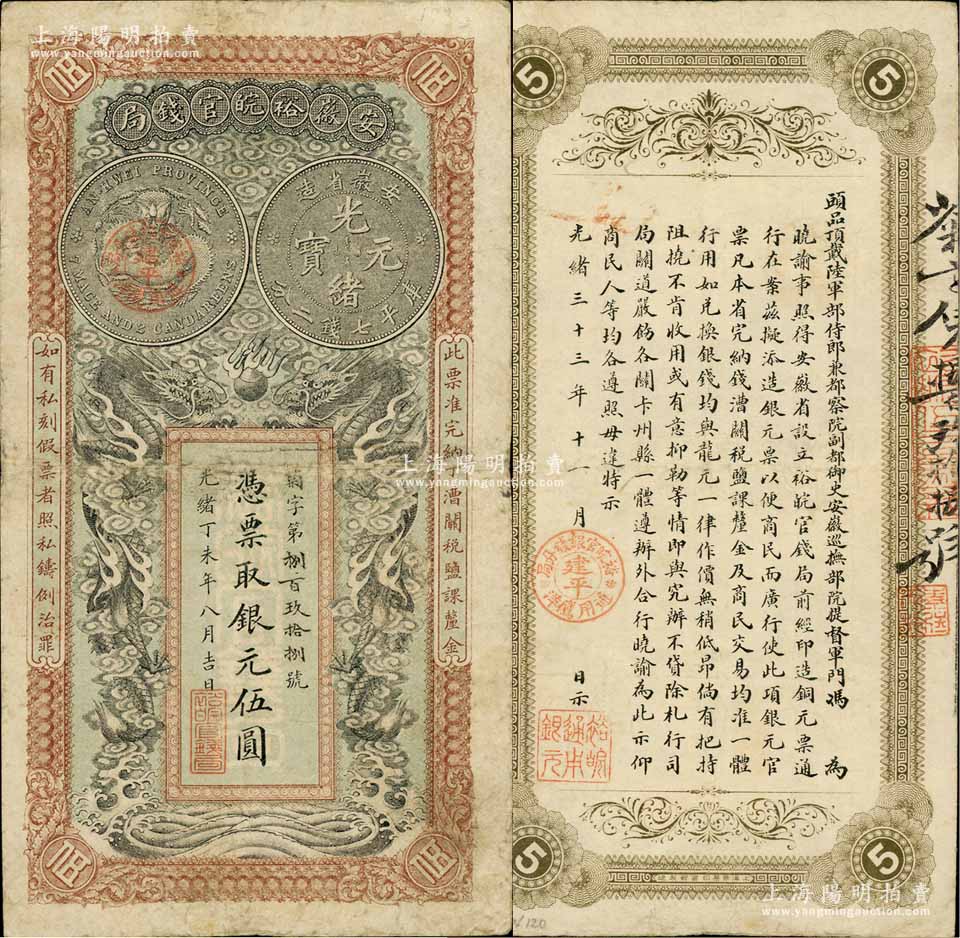 上海陽明拍賣
www.yangmingauction.com
上海陽明拍賣
www.yangmingauction.com
伍
伍
安徽裕皖官錢局
AN-HWEI PROVINCE
7 MACE AND 2 CANDAREENS
安徽省造
光緒元寶
庫平七錢二分
此票准完納丁漕關稅鹽課釐金
如有私刻假票者照私鑄例治罪
第捌百玖拾捌號
憑票取銀元伍圓
光緒丁未年八月吉日
伍
伍
5
5
頭品頂戴陸軍部侍郎兼都察院副都御史安徽巡撫部院提督軍門馮 為
曉諭事照得安徽省設立裕皖官錢局前經印造銅元票通
行在案茲擬添造銀元票以便商民而廣行使此項銀元官
票凡本省完納錢漕關稅鹽課釐金及商民交易均准一體
行用如兌換銀錢均與龍元一律作價無稍低昂倘有把持
阻撓不肯收用或有意抑勒等情即與究辦不貸除札行司
局關道嚴飭各關卡州縣一體遵辦外合行曉諭為此示仰
商民人等均各遵照毋違特示
光緒三十三年十一月 日示
建平
裕皖
通用
銀元
5
5
上海陽明拍賣
www.yangmingauction.com
上海陽明拍賣
www.yangmingauction.com
120